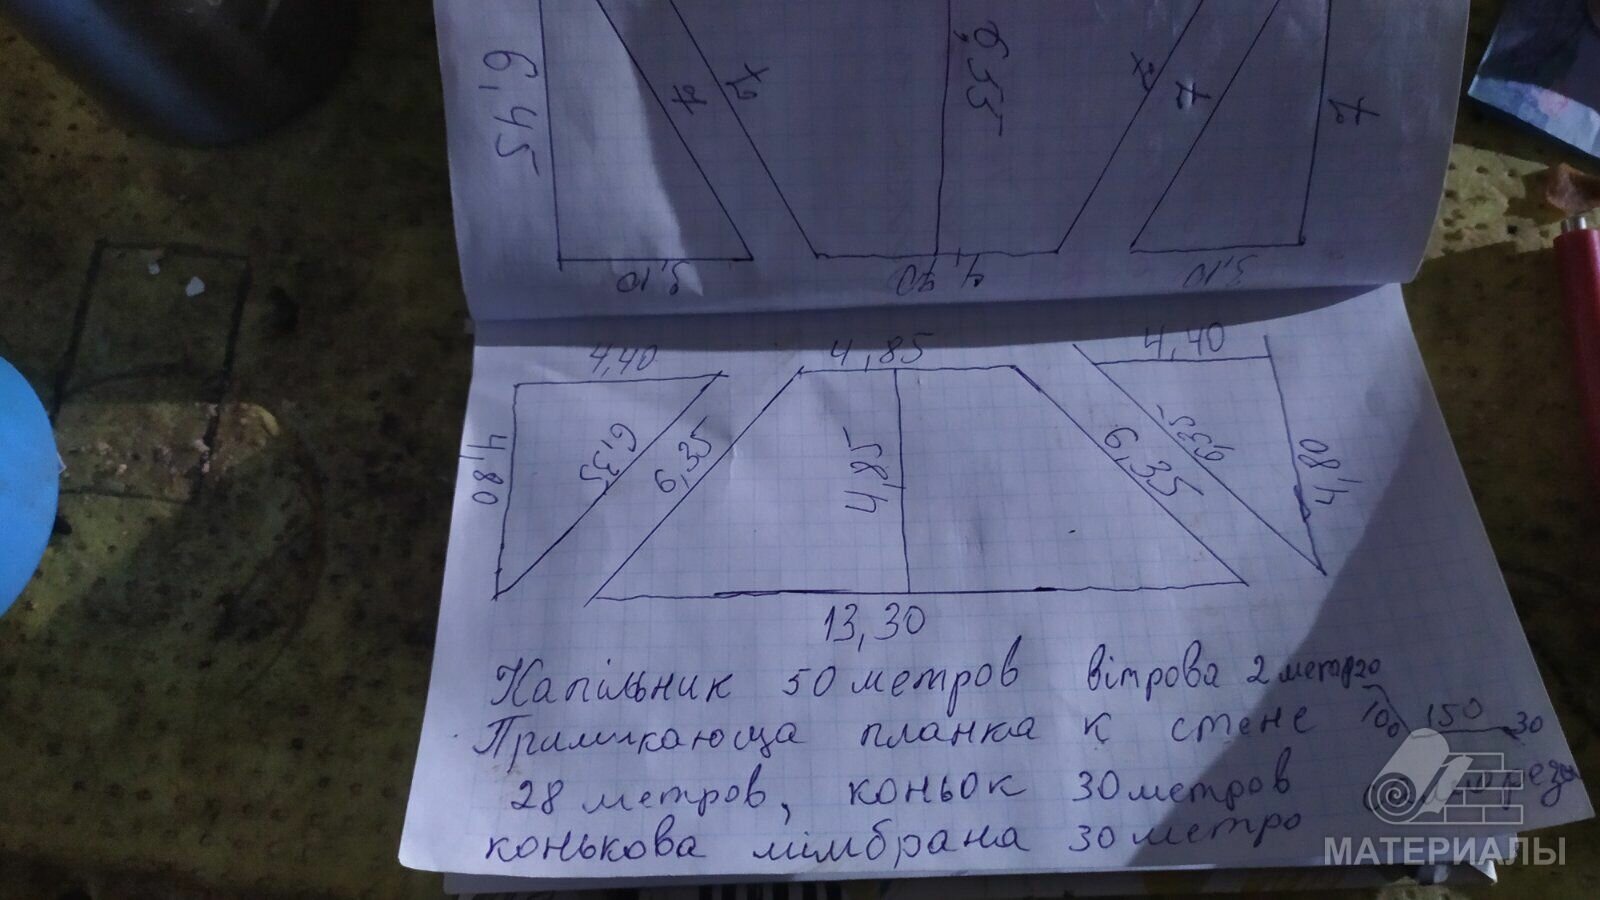 6,45
7
7
6,55
7
7
7
3,10
4,90
3,10
4,40
4,85
4,40
4,80
6,35
6,35
4,85
6,35
6,35
4,80
13,30
Капільник 50 метров вітрова 2 метр
20
Примикающа планка к стене
100
150
30
28 метров, коньок 30 метров
конькова мімбрана 30 метро
МАТЕРИАЛЫ